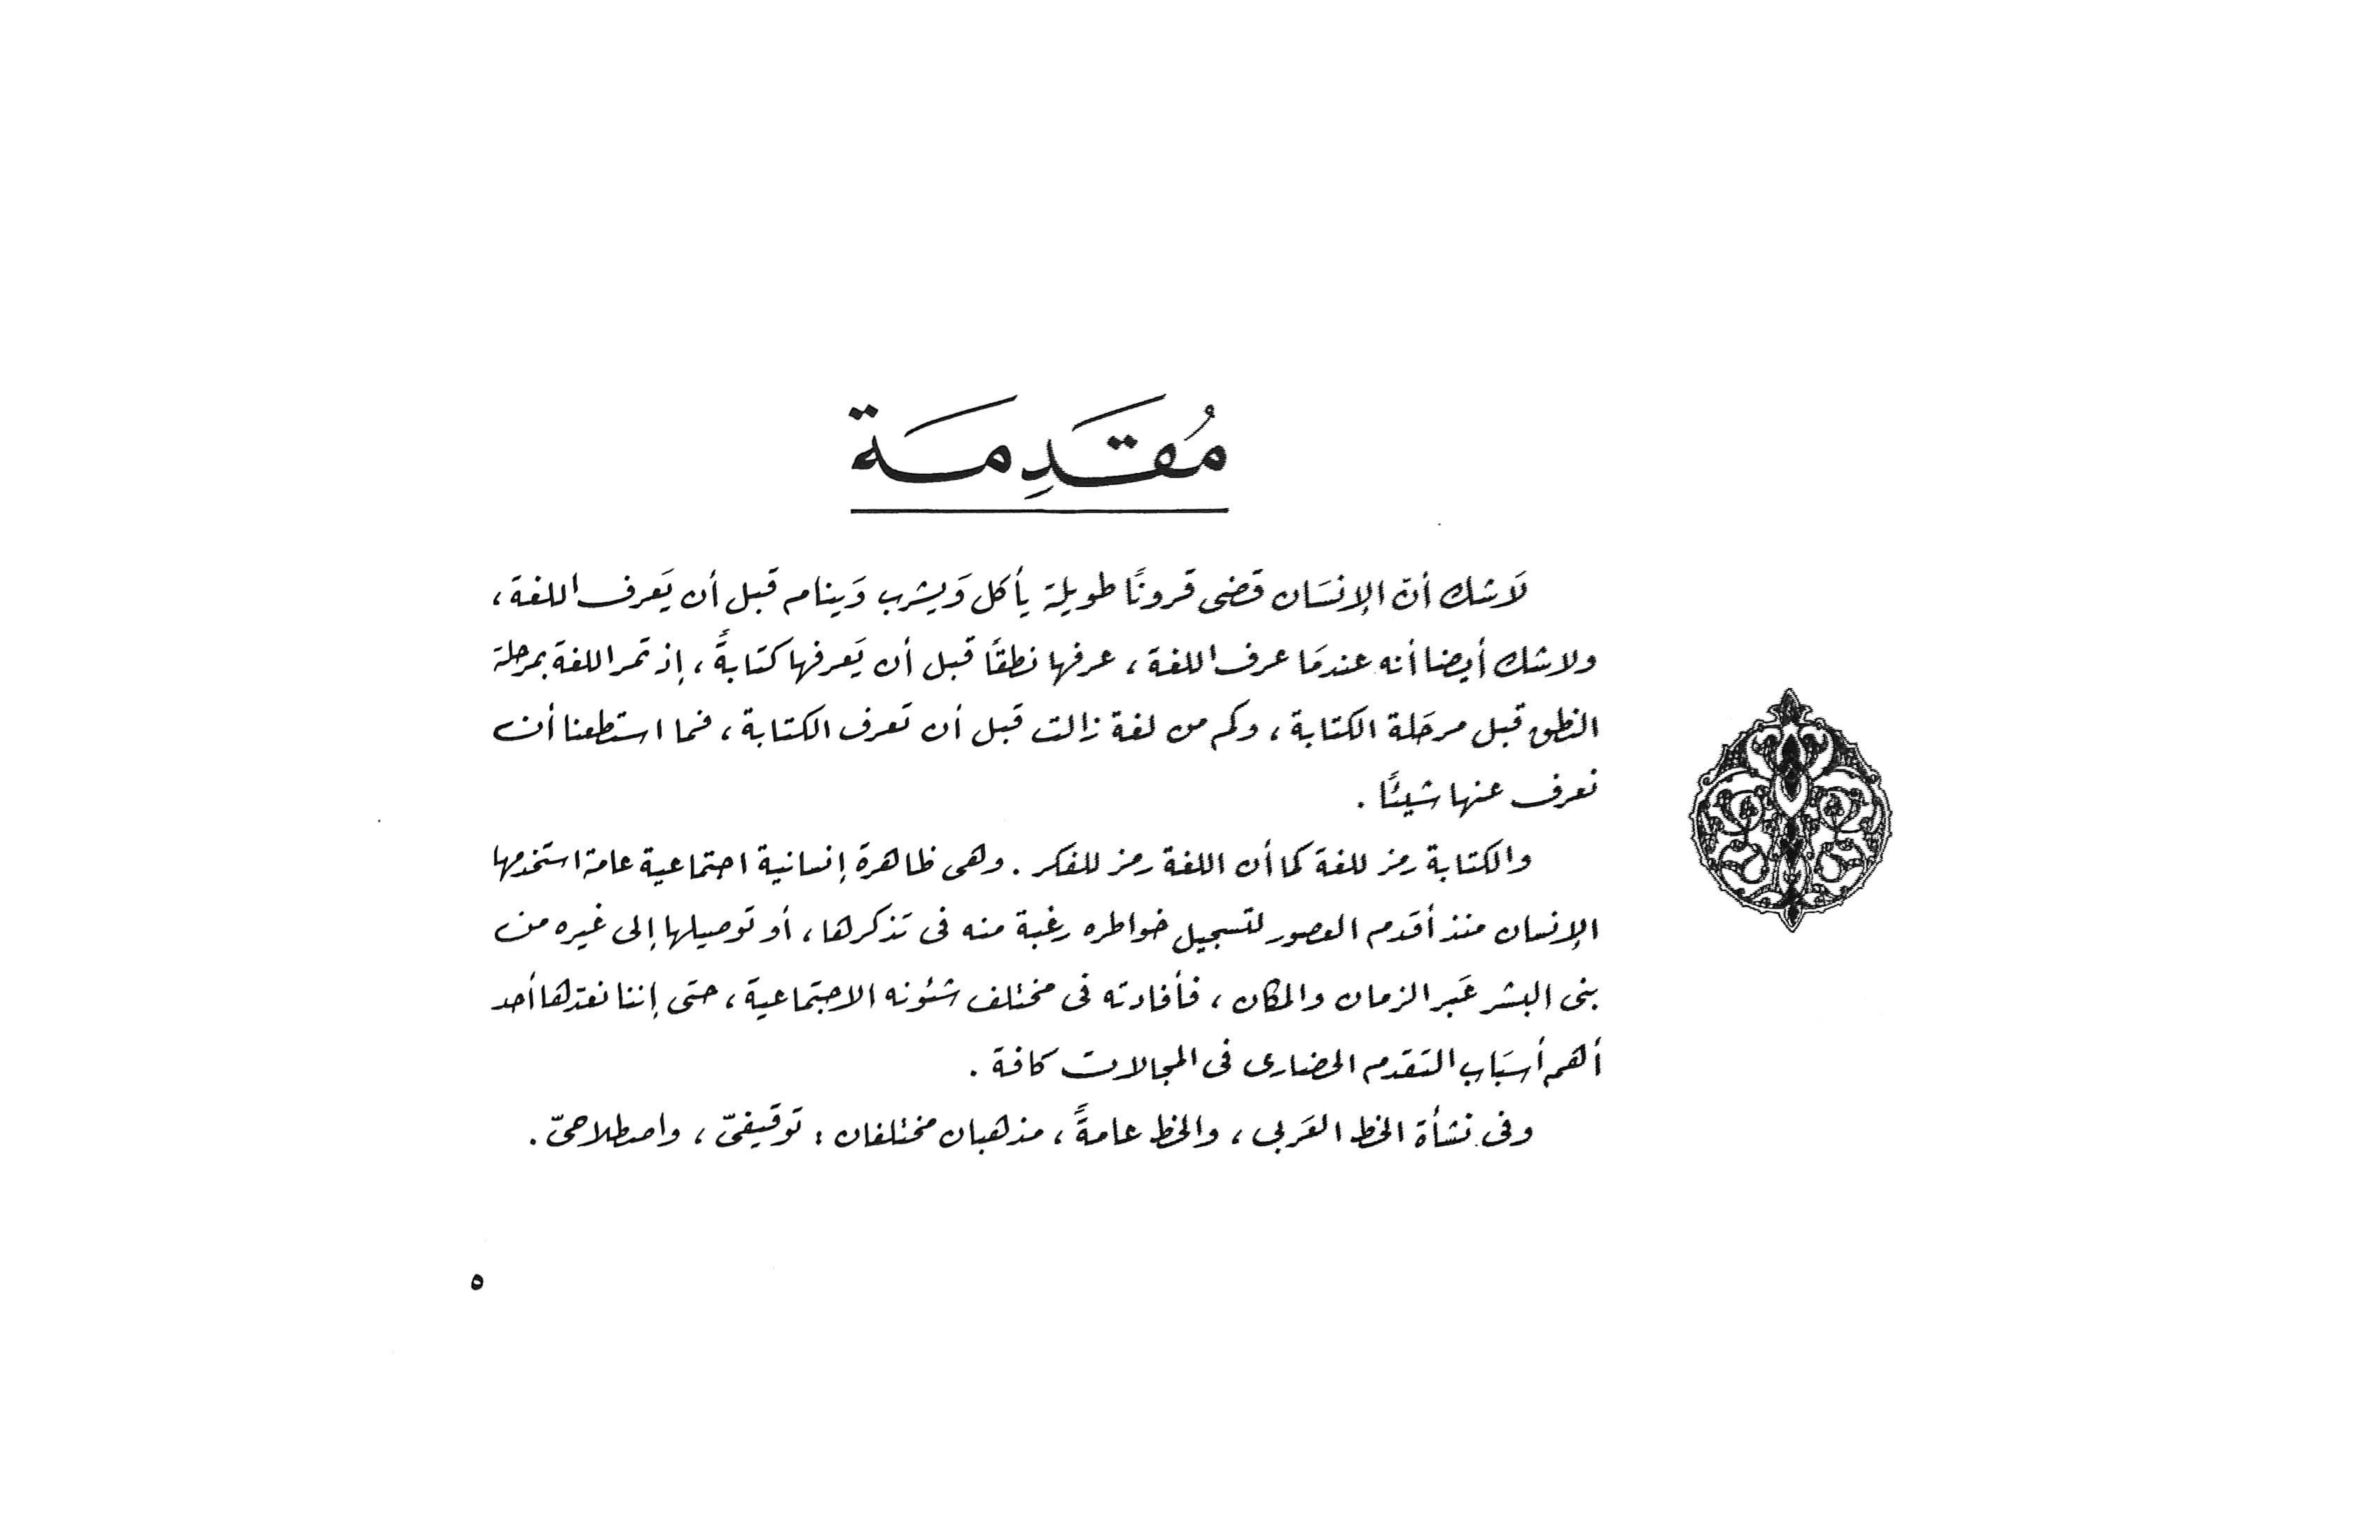 مُقَدِمَة
لَاشك أنّ الإنسَان قضى قرونًا طويلة يأكل وَيشرب وَينام قبل أن يَعرف اللغة ،
ولاشك أيضا أنه عندمَا عرف اللغة ، عرفها نطقًا قبل أن يَعرفها كتابةً ، إذ تمر اللغة بمرحلة
النطق قبل مرحَلة الكتابة ، وكم من لغة زالت قبل أن تعرف الكتابة ، فما استطعنا أن
نعرف عنها شيئًا .
والكتابة رمز للغة كما أن اللغة رمز للفكر . وهى ظاهرة إنسانية اجتماعية عامة استخدمها
الإنسان منذ أقدم العصور لتسجيل خواطره رغبة منه فى تذكرها ، أو توصيلها إلى غيره من
بنى البشر عَبر الزمان والمكان ، فأفادته فى مختلف شئونه الاجتماعية ، حتى إننا نعدّها أحد
أهم أسبَاب التقدم الحضارى فى المجالات كافة .
وفى نشأة الخط العَربى ، والخط عامةً ، مذهبان مختلفان : توقيفىّ ، واصطلاحىّ .
٥